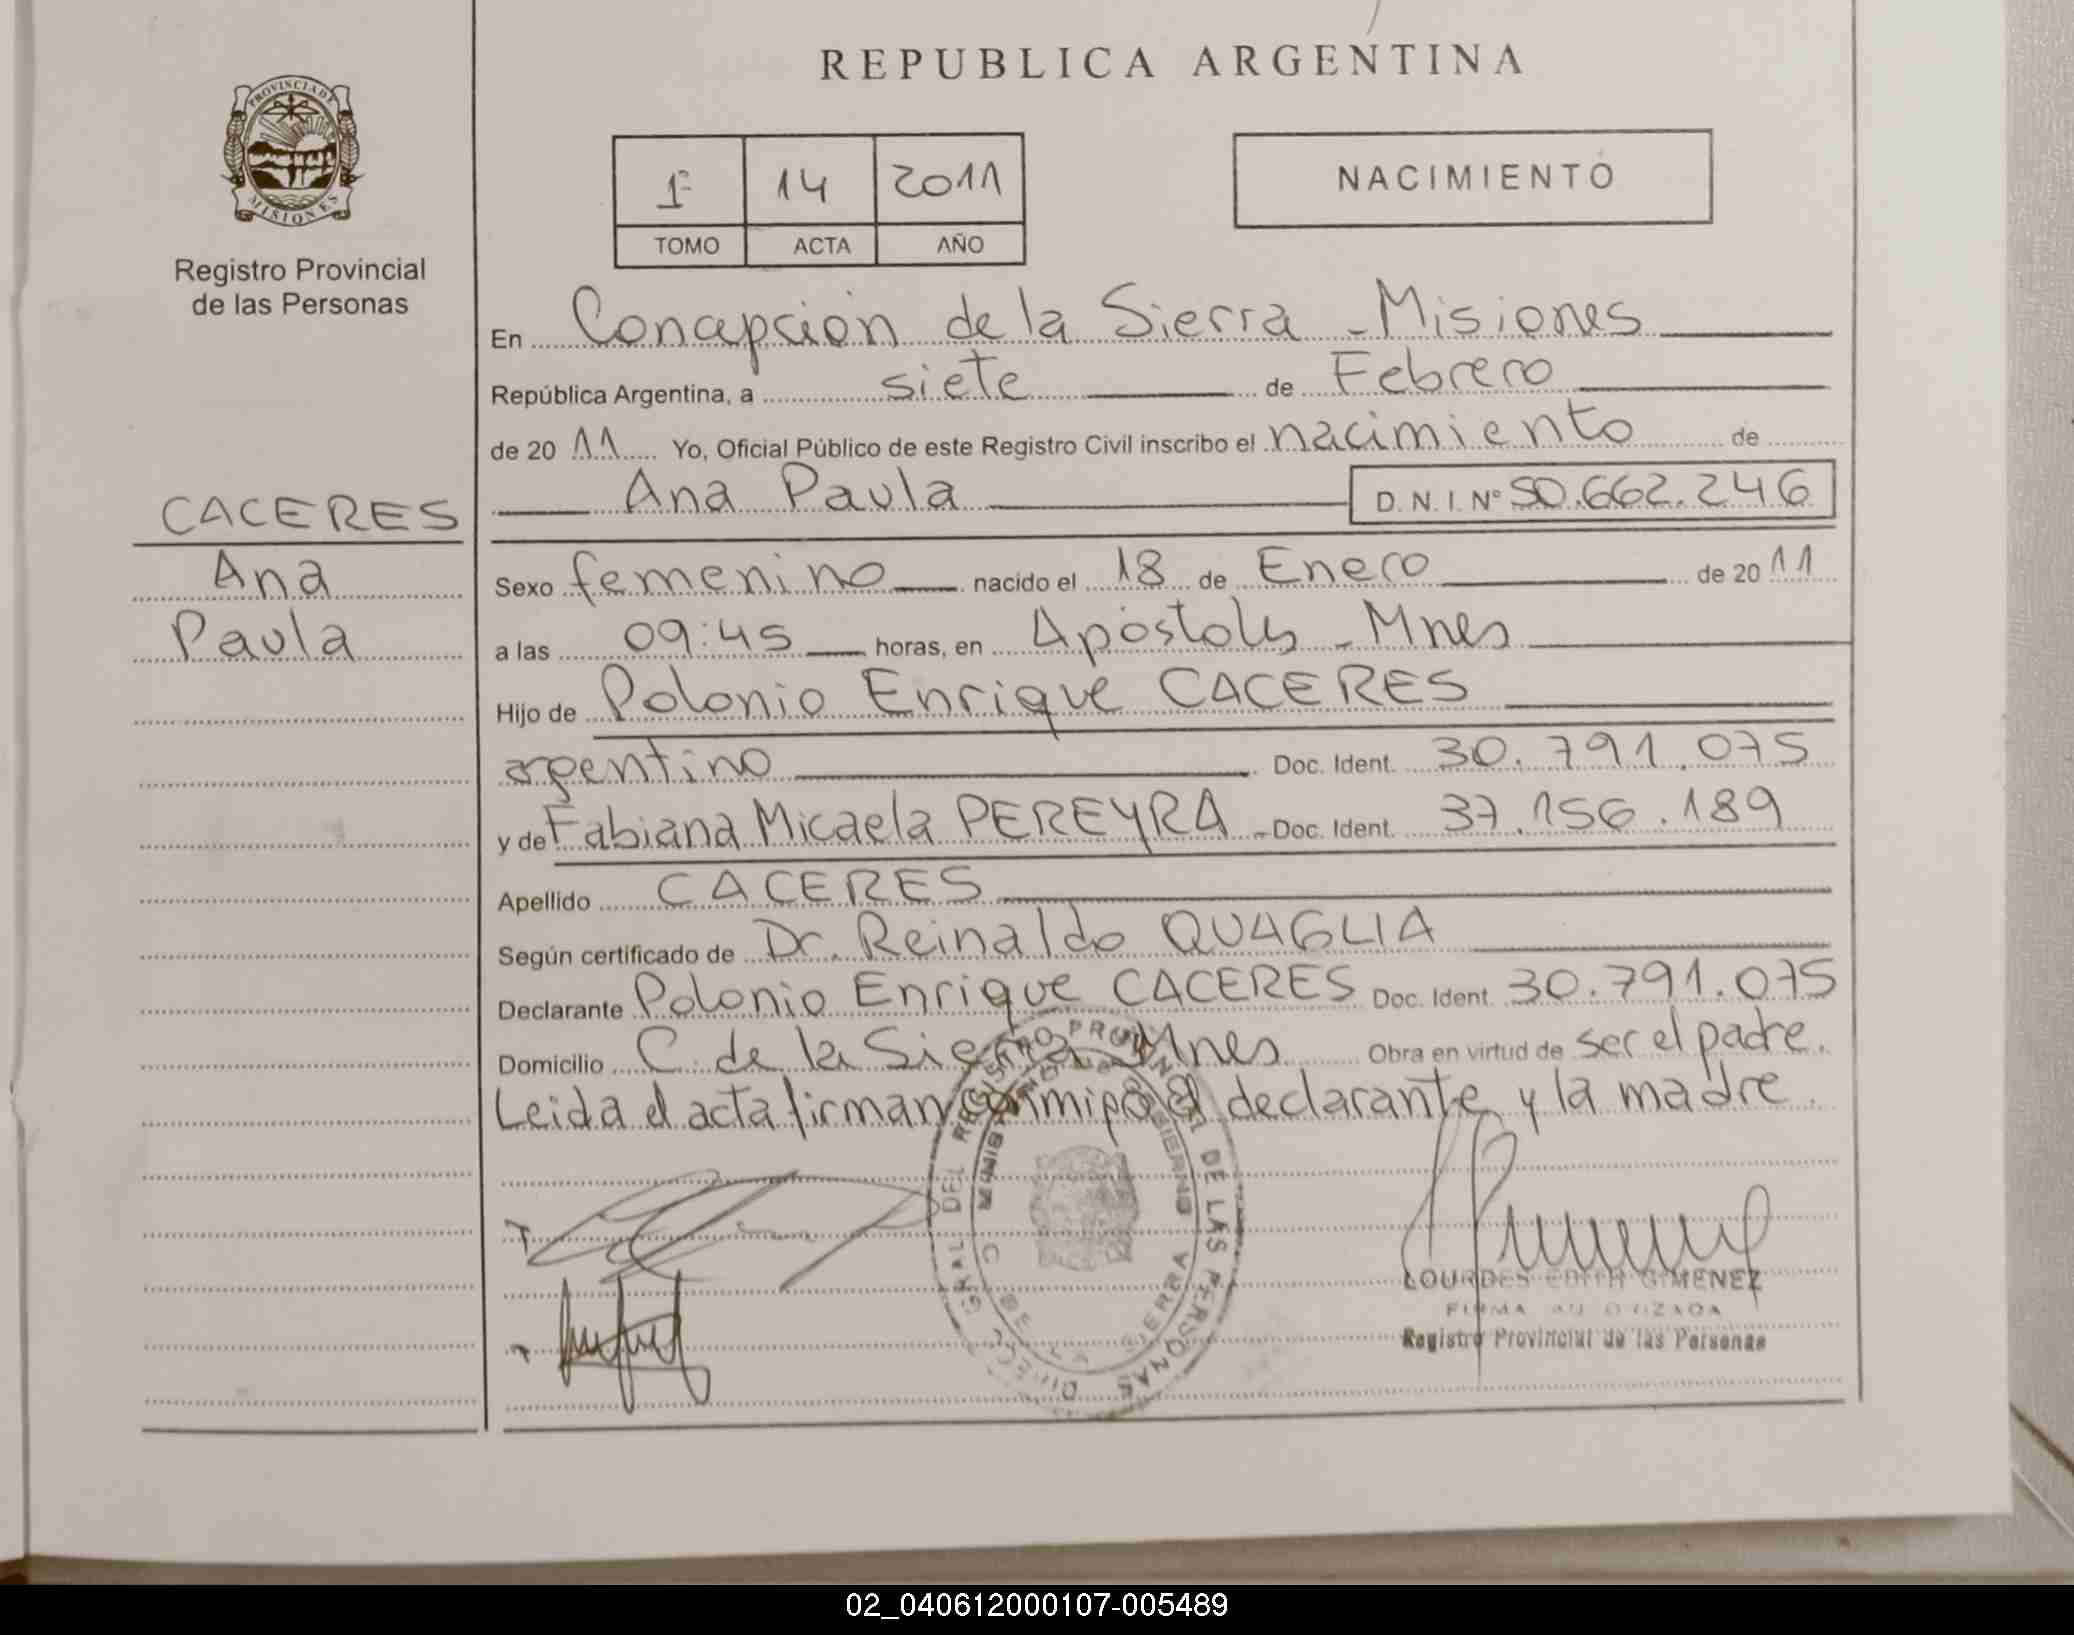 REPUBLICA ARGENTINA
PROVINCIA DE
MISIONES
Registro Provincial
de las Personas
1º 14 2011
TOMO ACTA AÑO
NACIMIENTO
En Concepsion de la Sierra - Misiones
República Argentina, a siete de Febrero
de 20 11 Yo, Oficial Público de este Registro Civil inscribo el nacimiento de
Ana Paula D. N. I. Nº 50.662.246
CACERES
Ana
Paula
Sexo femenino nacido el 18 de Enero de 20 11
a las 09:45 horas, en Apóstoles - Mnes
Hijo de Polonio Enrique CACERES
argentino Doc. Ident. 30.791.075
y de Fabiana Micaela PEREYRA - Doc. Ident. 37.156.189
Apellido CACERES
Según certificado de Dr. Reinaldo QUAGLIA
Declarante Polonio Enrique CACERES Doc. Ident. 30.791.075
Domicilio C. de la Sierra Mnes Obra en virtud de ser el padre.
Leida el acta firman conmigo el declarante y la madre.
GRAL DEL REGISTRO PROVINCIAL DE LAS PERSONAS
MINISTERIO DE GOBIERNO
C DE LA SIERRA
LOURDES EDITH GIMENEZ
FIRMA AUTORIZADA
Registro Provincial de las Personas
02_040612000107-005489